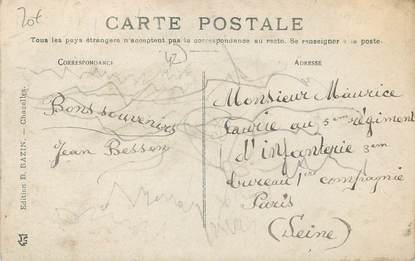 20€
CARTE POSTALE
Tous les pays étrangers n'acceptent pas la correspondance au recto. Se renseigner à la poste.
CORRESPONDANCE
(42)
ADRESSE
Bons souvenirs
Jean Besson
Monsieur Maurice
Faurie au 5eme régiment
d'infanterie 3em
bureau 1re compagnie
Paris
(Seine)
Edition B. BAZIN. — Chazelles.